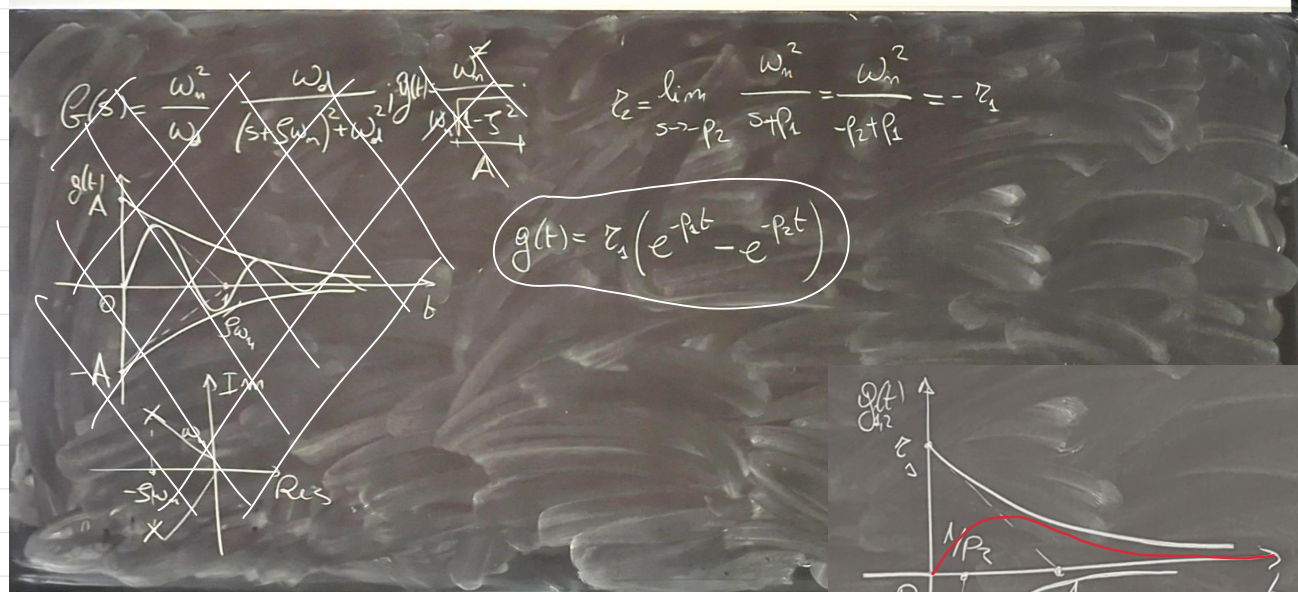 G(s) = ω_n^2/ω_d ω_d/((s+ζω_n)^2+ω_d^2) ; g(t) = ω_n/(ω_n√(1-ζ^2))
A
g(t)
A
O
t
ζω_n
-A
Im
ω_n
-ζω_n
Re s
τ_2 = lim s→-p_2 ω_n^2/(s+p_1) = ω_n^2/(-p_2+p_1) = -τ_1
g(t) = τ_1(e^{-p_1t} - e^{-p_2t})
g(t)
1,2
τ_1
1/p_2